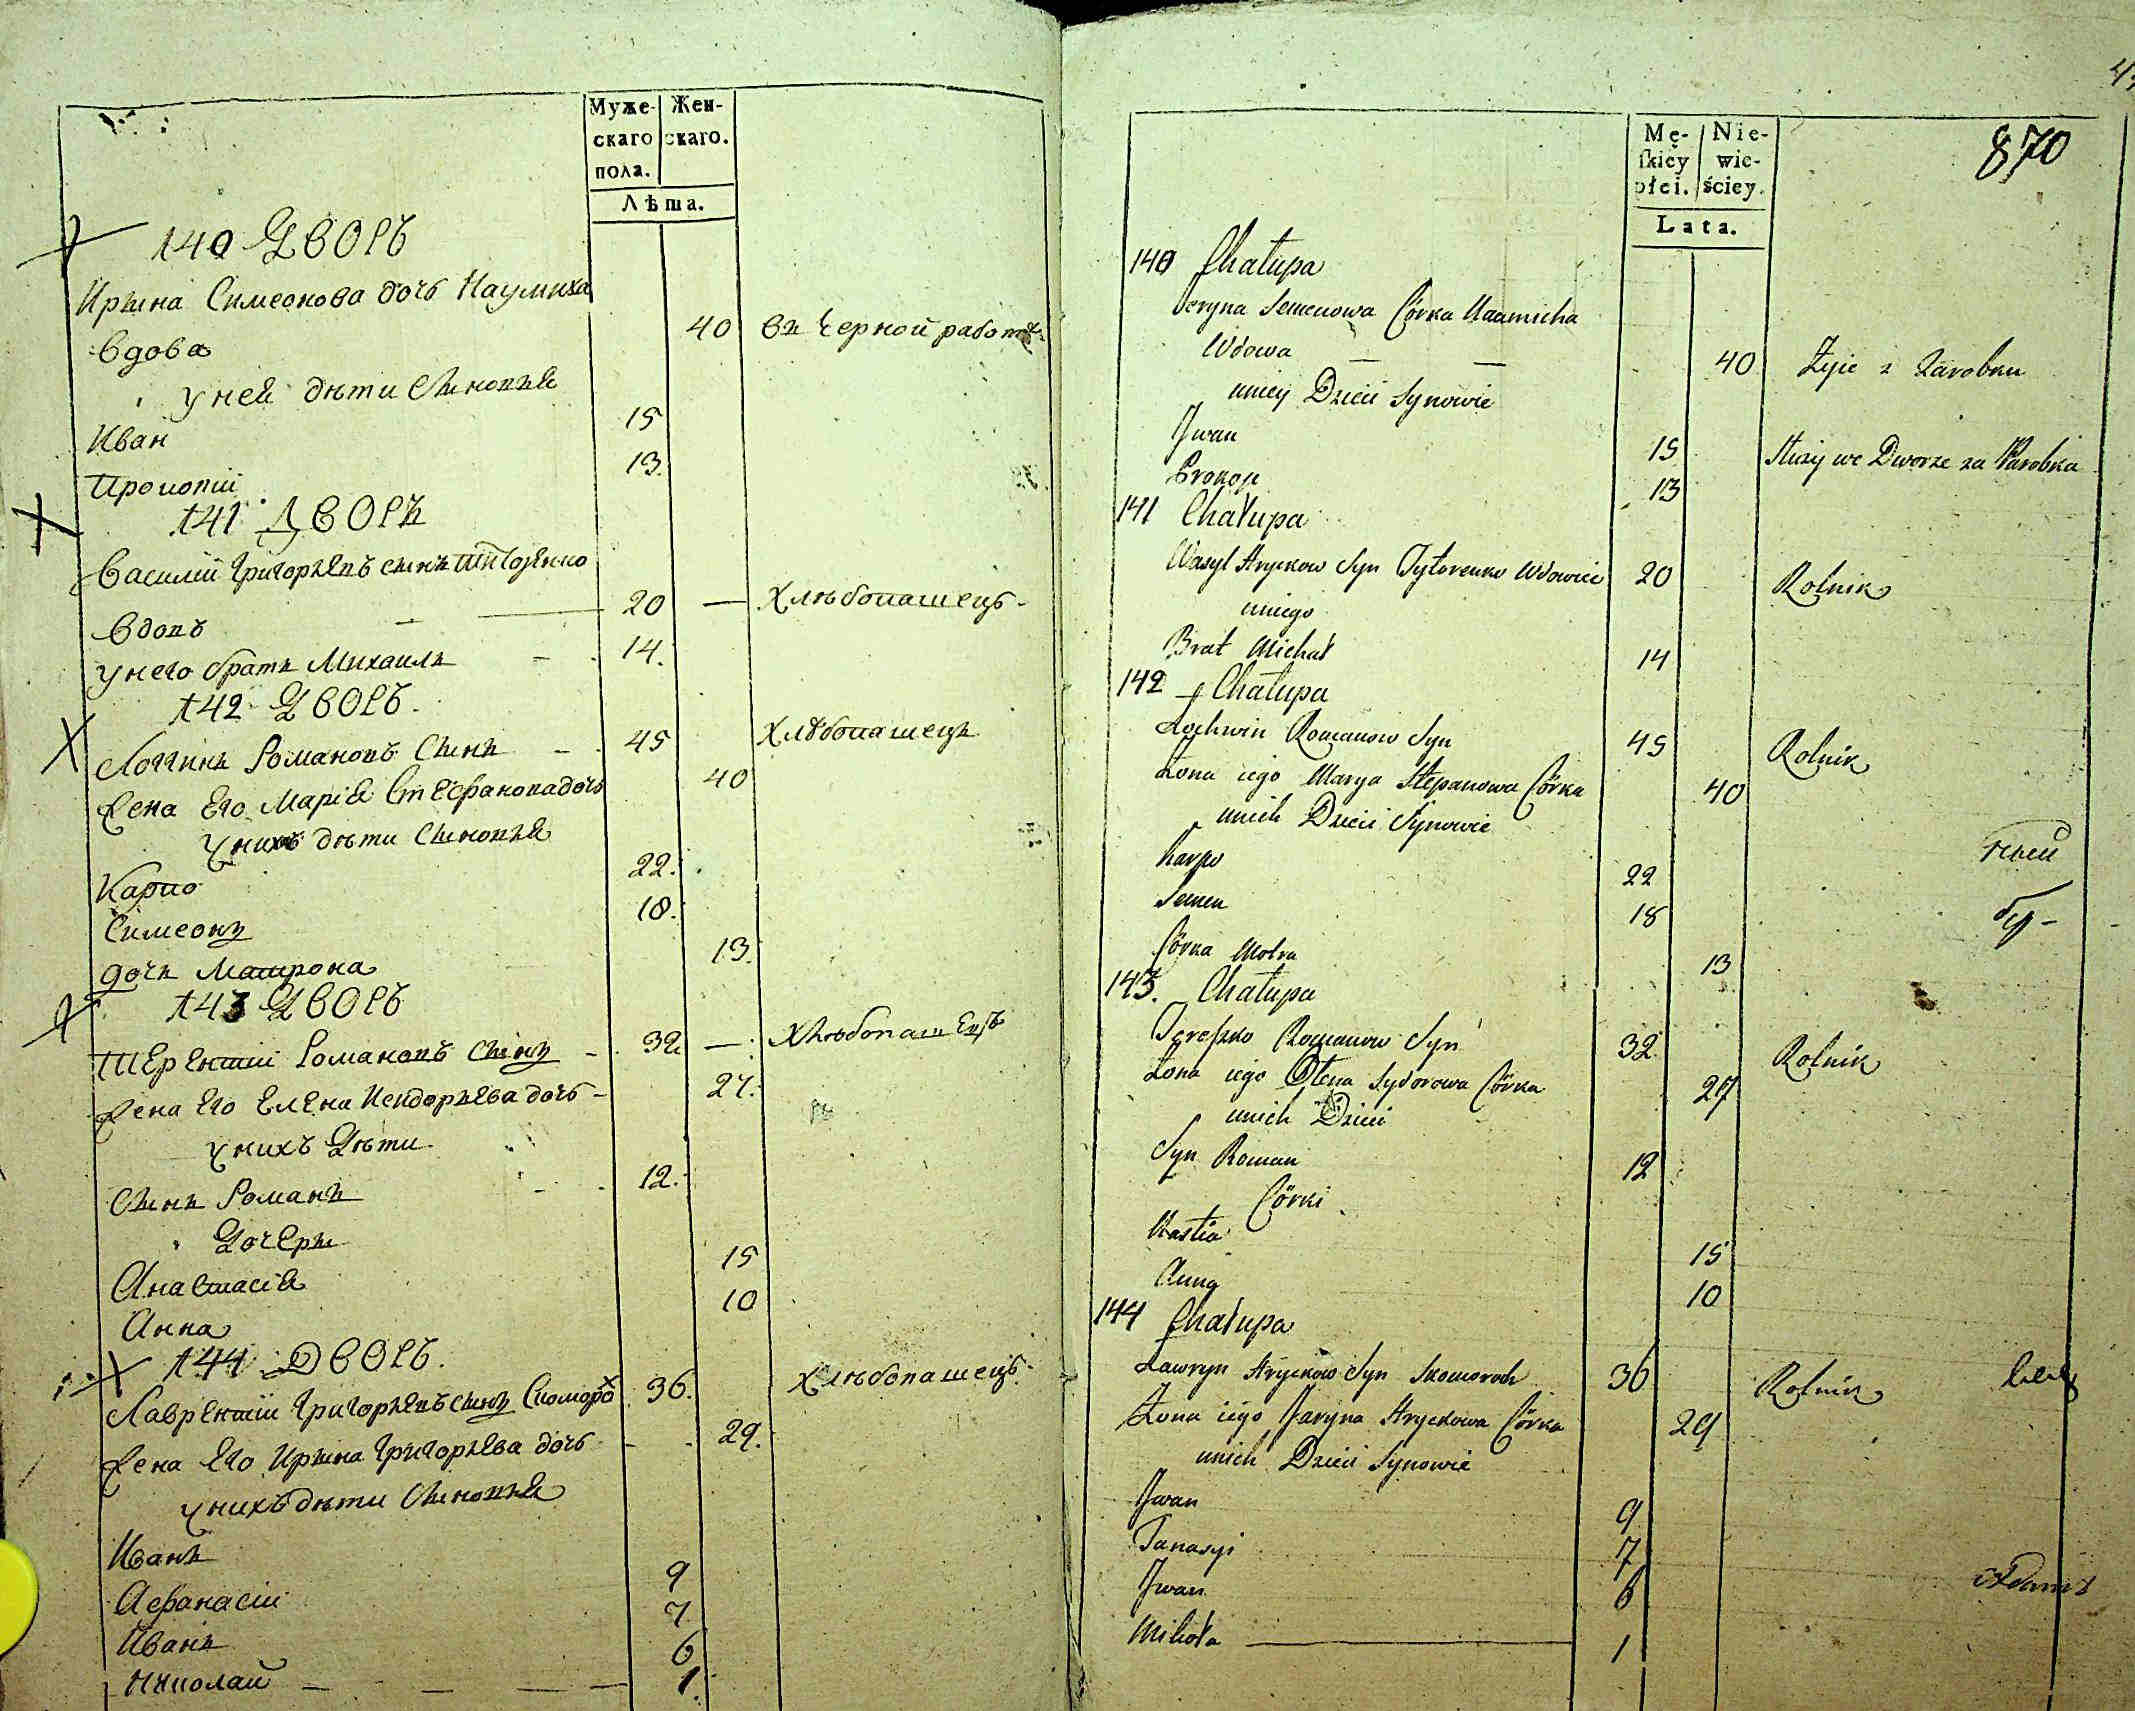 Муже-
скаго
пола.
Жен-
скаго.
Лѣта.
140 Дворъ
Ирина Симеонова дочь Наумиха
вдова 40 въ черной работѣ
у ней дѣти Синовья
Иван 15
Прокопій 13.
141 Дворъ
Василій Григорьевъ синъ Титоренко
вдовъ — 20 — Хлѣбопашецъ
у него братъ Михаилъ 14.
142 Дворъ.
Логгинъ Романовъ Синъ 45 Хлѣбопашецъ
Жена Его Марія Стефанова дочь 40
у нихъ дѣти Синовья
Карпо 22.
Симеонъ 18.
дочь Матрона 13.
143 Дворъ
Терентій Романовъ синъ 32 — Хлѣбопашецъ
Жена Его Елена Исидорьева дочь 27.
у нихъ Дѣти
Синъ Романъ 12.
Дочери
Анастасія 15
Анна 10
144 Дворъ.
Лаврентій Григорьевъ синъ Скоморохъ 36. Хлѣбопашецъ
Жена Его Ирина Григорьева дочь 29.
у нихъ дѣти Синовья
Иванъ 9
Афанасій 7
Иванъ 6
Николай — — — — 1.
Mę-
skiey
płci.
Nie-
wie-
ściey.
Lata.
870
140 Chałupa
Jeryna Semenowa Córka Naumicha
Wdowa — — 40 Żyie z Zarobku
u niey Dzieci Synowie
Jwan 15 Służy we Dworze za Parobka
Prokop 13
141 Chałupa
Wasyl Hryckow Syn Tytorenko Wdowiec 20 Rolnik
u niego
Brat Michał 14
142 Chałupa
Lochwin Romanow Syn 45 Rolnik
Żona iego Marya Stepanowa Córka 40
u nich Dzieci Synowie
Karpo 22
Semen 18
Córka Motra 13
143. Chałupa
Tereszko Romanow Syn 32 Rolnik
Żona iego Ołena Sydorowa Córka 27
u nich Dzieci
Syn Roman 12
Córki
Nastia 15
Anna 10
144 Chałupa
Ławryn Hryckow Syn Skomoroch 36 Rolnik
Żona iego Jaryna Hryckowa Córka 29
u nich Dzieci Synowie
Jwan 9
Tanasyi 7
Jwan 6
Mikoła — 1